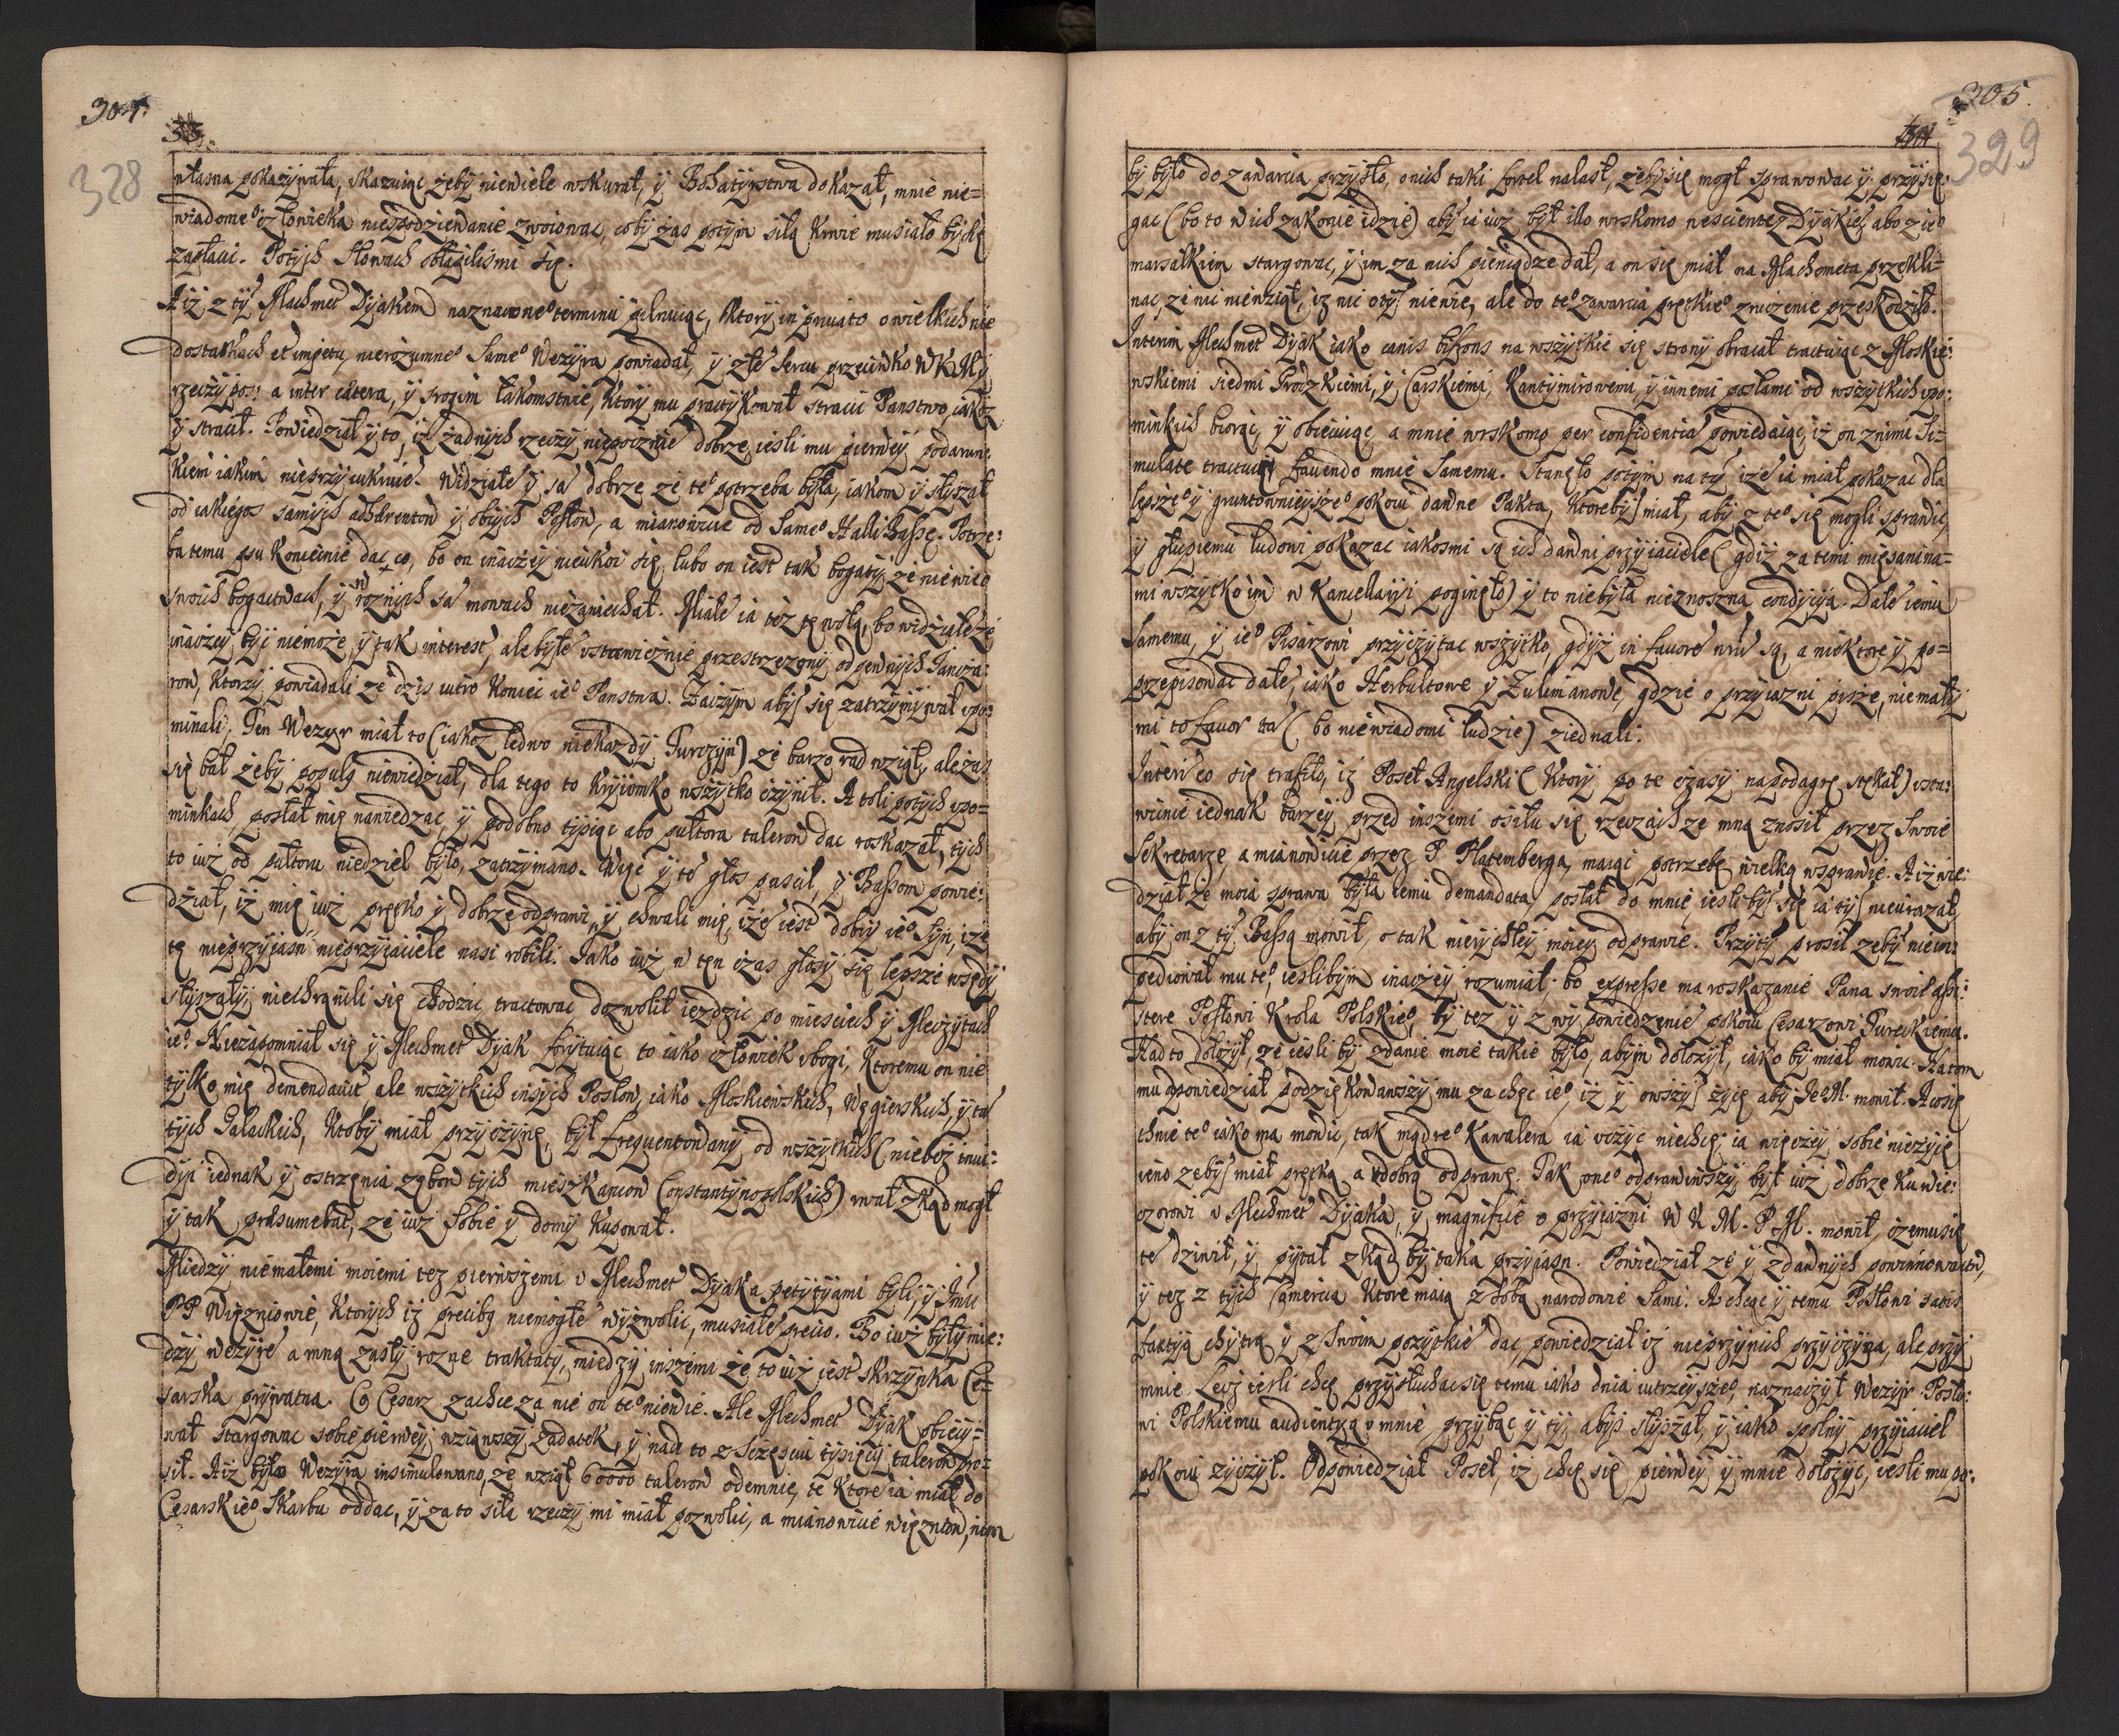 304.
33.
328
własna pokazywała, skazuiąc żeby niewiele wskurał, ÿ Bohatÿrstwa dokazał, mnie nie=
wiadomeᵒ człowieka niespodziewanie zwoiować, coby zas potÿm siłą Krwie musiało bÿdź
zapłaci. Potÿch słowach obłapilismi się.
Aiż z tÿ Mechmet Dÿakem naznaczoneᵒ terminu pilnuiąc, Ktorÿ in priuato o wielkich nie
dostatkach et impetu, nierozumneᵒ Sameᵒ Wezÿra powiadał, ÿ złe Sercu przeciwko WKMÿ
rzeczÿ pos: a inter cætera, ÿ srogim łakomstwie, Ktorÿ mu practÿkował stracic Panstwo, iakoż
ÿ stracił. Powiedział ÿ to, iż żadnÿch rzeczÿ niepocznie dobrze, iesli mu pierweÿ podarun:
kiem iakim nieprzÿcuknie. Widziałe ÿ sa dobrze że teᵒ potrzeba była, iakom ÿ słÿszał
od iakiegos samÿch adhærentow ÿ obÿch Posłow, a mianowicie od Sameᵒ Halli Basse. Potrze:
ba temu psu Koniecznie dac co, bo on inaczeÿ nieukoi się, lubo on iest tak bogatÿ, że niewie o
swoich bogactwach, ÿ w roznÿch sa mowach niezaniechał. Miałe ia też tę wolą, bo widziałe że
inaczeÿ bÿc niemoże, ÿ tak interest, ale byłe vstawicznie przestrzezonÿ od pewnÿch Jancza:
row, Ktorzÿ powiadali że dzis iutro Koniec ieᵒ Panstwa. Zaczÿm abÿ się zatrzÿmÿwał vpo:
minali, Ten Wezÿr miał to (iakoż ledwo niekażdÿ Turczÿn) że barzo rad wziął, ale zas
się bał żebÿ popul9 niewiedział, dla tego to Krÿiomko wszÿtko czÿnił. A toli potÿch vpo=
minkach, posłał mię nawiedzac, ÿ podobno tÿsiąc abo pułtora talerow dac roskazał, tÿch
to iuż od pułtoru niedziel było, zatrzÿmano. Więc ÿ te głos puscił, ÿ Bassom powie:
dział, iż mię iuż prętko ÿ dobrze odprawi, ÿ chwali mię, iże iest dobrÿ ieᵒ Sÿn, iże
tę nieprzÿiasn nieprzÿiaciele nasi robili. Jako iuż w ten czas głosÿ się lepsze wszędÿ
słÿszałÿ, niechranili się chodzic, tractowac dozwolił iezdzic po miesciech ÿ Meczÿtach
ieᵒ. Niezapomniał się ÿ Mechmet Dÿak forÿtuiąc to iako człowiek vbogi, Ktoremu on nie
tÿlko mię demendauit ale wszÿtkich inszÿch Posłow, iako Moskiewskich, Węgierskich, ÿ ta
tÿch Galackich, Ktobÿ miał przÿczÿnę, bÿł frequentowanÿ od wszÿtkich (niebez inui:
dÿi iednak ÿ ostrzenia zębow tÿch mieszkancow Constantÿnopolskich) rwał zkąd mogł
ÿ tak præsumebat, że iuż sobie ÿ domÿ Kupował.
Miedzÿ niemałemi moiemi tez pierwszemi v Mechmet Dÿaka petÿtÿami byli, ÿ Jmċ
PP Więzniowie, Ktorÿch iż precib9 niemogłe wÿzwolic, musiałe precio. Bo iuż bÿłÿ mie:
dzÿ wezÿre a mną zaszłÿ rozne traktatÿ, miedzÿ inszemi że to iuż iest skrzÿnka Ce=
sarska prÿwatna. Co Cesarz zachce za nie on teᵒ niewie. Ale Mechmet Dÿak obiecÿ=
wał stargowac sobie pierweÿ wziąwszÿ zadatek, ÿ nad to z szesciu tÿsięcÿ talerow pro=
sił. Aiż było Wezÿra insimulowano, że wziął 60000 talerow odemnie, te Ktore ia miał do
Cesarskieᵒ Skarbu oddac, ÿ za to siła rzeczÿ mi miał pozwolic, a mianowicie więzniow, nim
305.
329
bÿ było do zawarcia przÿszło, o nich taki fortel nalazł, żebÿ się mogł sprawowac ÿ przÿsię:
gac (bo to w ich zakonie idzie) abÿ ia iuż bÿł illo wrskomo nesciente z Dÿakie, abo z ieᵒ
marsałkiem stargowac, ÿ im za nich pieniądze dał, a on się miał na Machometa przekli=
nac, że nic niewziął, iż nic o tÿ niewie, ale do teᵒ zawarcia prętkieᵒ zrucenie przeskodziło.
Interim Mechmet Dÿak iako canis bifrons na wszÿtkie się stronÿ obracał tractuiąc z Moskie:
wskiemi siedmi Grodzkiemi, ÿ Carskiemi, Kantÿmirowemi, ÿ innemi posłami od wszÿtkich vpo:
minkich biorąc, ÿ obiecuiąc, a mnie wrskomo per confidentia powiedaiąc, iż on znimi Si=
mulate tractuie favendo mnie Samemu. Stanęło potÿm na tÿ, iże ia miał pokazac dla
lepszeᵒ ÿ gruntownieÿszeᵒ pokoiu dawne Pakta, Ktorebÿ miał, abÿ z teᵒ się mogli sprawic,
ÿ głupiemu ludowi pokazac iakosmi są ich dawni przÿiaciele (gdÿż za temi mięsaninа=
mi wszÿtko im w Kancellaÿi poginęło) ÿ to niebÿła nieznoszna condÿcÿa. Dałe iemu
Samemu, ÿ ieᵒ Pisarzowi przÿczÿtac wszÿtko, gdÿż in fauore nrm̃ są, a niektore ÿ po=
przepisowac dałe, iako Herbultowe ÿ Zulimanowe, gdzie o przÿiazni pisze, niemałÿ
mi to favor ta (bo niewiadomi ludzie) ziednali.
Interi co się trafiło, iż Poseł Angelski (Ktorÿ po te czasÿ na podagrę stękał) vsta:
wicnie iednak barzeÿ przed inszemi osiłu się rzeczach ze mną znosił przez Swoie
Sekretarze, a mianowicie przez P Platemberga, maiąc potrzebę wielką wsprawie. Aiż wie:
dział że moia sprawa była iemu demandata, posłał do mnie, iesli bÿ się ia tÿ nieurazał,
abÿ on z tÿ Bassą mowił, o tak nierÿchłeÿ moieÿ odprawie. Przÿ tÿ prosił żebÿ nieim:
pediował mu teᵒ, ieslibÿm inaczeÿ rozumiał; bo expresse ma roskazanie Pana swoieᵒ assi:
stere Posłowi Krola Polskieᵒ, bÿ tez ÿ z wÿpowiedzenie pokoiu Cesarzowi Tureckiemu.
Nad to dołożÿł, że iesli bÿ zdanie moie takie było, abÿm dołożÿł, iako bÿ miał mowic. Na tom
mu opowiedział podziękowawszÿ mu za chęc ieᵒ, iż ÿ owszÿ żÿczę abÿ JeM. mowił. A co się
tknie teᵒ iako ma mowic, tak mądreᵒ Kawalera ia vczÿc niechcę, ia więczeÿ sobie nieżÿczę
ieno żebÿ miał prętką a dobrą odprawę. Tak oneᵒ odprawiwszÿ bÿł iuż dobrze Ku wie:
czorowi v Mechmet Dÿaka, ÿ magnificie o przÿiazni W K M. P.M. mowił, czemu się
te dziwił, ÿ pÿtał zkąd bÿ taka przÿiasn. Powiedział że ÿ zdawnÿch powinnowactw,
ÿ tez z tÿch Comercia Ktore maią z sobą narodowie Sami. A chcąc ÿ temu Posłowi satis
factÿą chÿtrą ÿ z Swoim pożÿtkie dac, powiedział iż nieprzÿnich przÿczÿna, ale przÿ
mnie. Lecz iesli chcę przÿsłuchac się temu iako dnia iutrzeÿszeᵒ, naznaczÿł Wezÿr Posło:
wi Polskiemu audientÿą v mnie, przÿbąc ÿ tÿ, abÿs słÿszał, ÿ iako spolnÿ przÿiaciel
pokoiu żÿczÿł. Odpowiedział Poseł, iż chcę się pierweÿ ÿ mnie dołożÿc, iesli mu po: